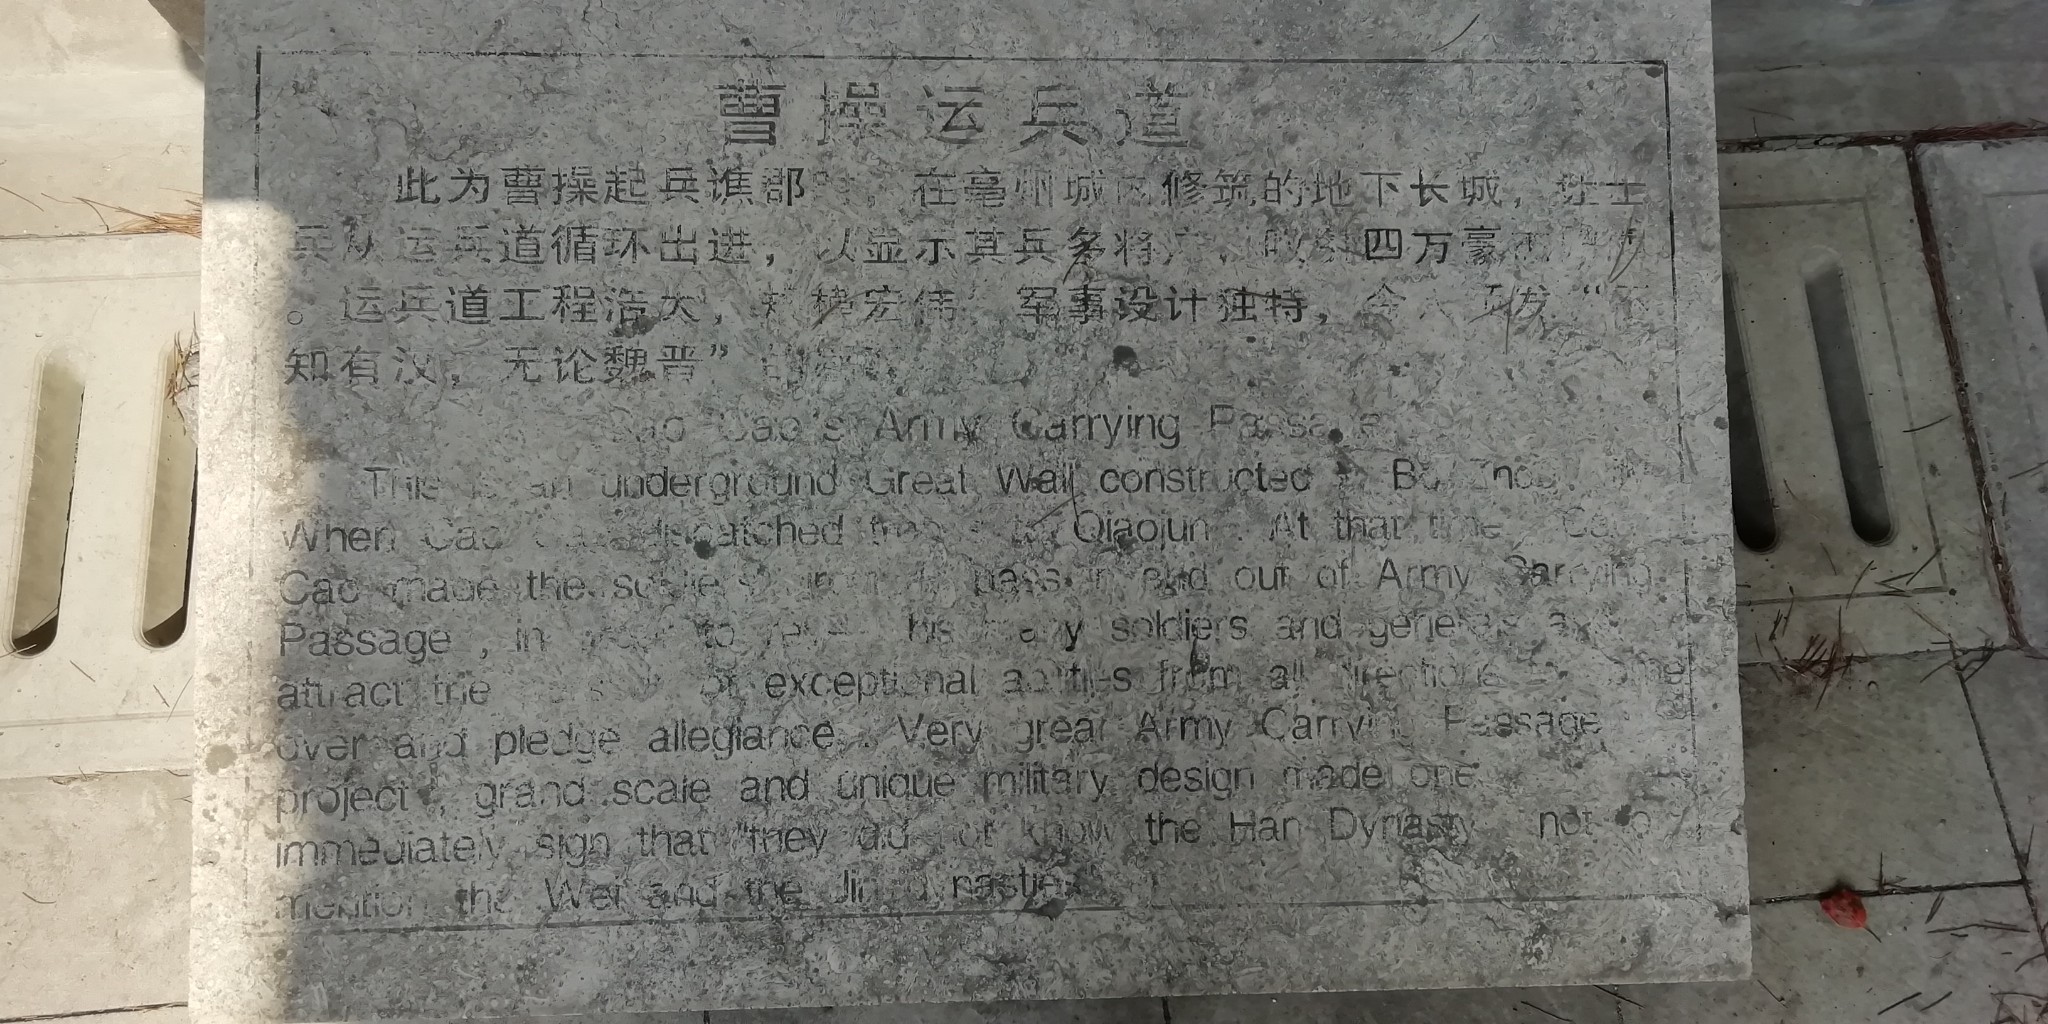 曹操运兵道
此为曹操起兵谯郡 , 在亳州城内修筑的地下长城, 让士
兵从运兵道循环出进, 以显示其兵多将广, 吸引四万豪杰
。运兵道工程浩大, 规模宏伟, 军事设计独特, 令人顿发“不
知有汉, 无论魏晋”
Cao Cao's Army Carrying Passage
This is an underground Great Wall constructed in Bo Zhou
When Cao Cao dispatched to Qiaojun . At that time , Cao
Cao made the soldiers pass in and out of Army Carrying
Passage , in order to his many soldiers and generals
attract the of exceptional abilities from all directions to come
over and pledge allegiance . Very great Army Carrying Passage
project , grand scale and unique military design made one
immediately sign that "they did not know the Han Dynasty not to
mention the Wei and the Jin dynasties